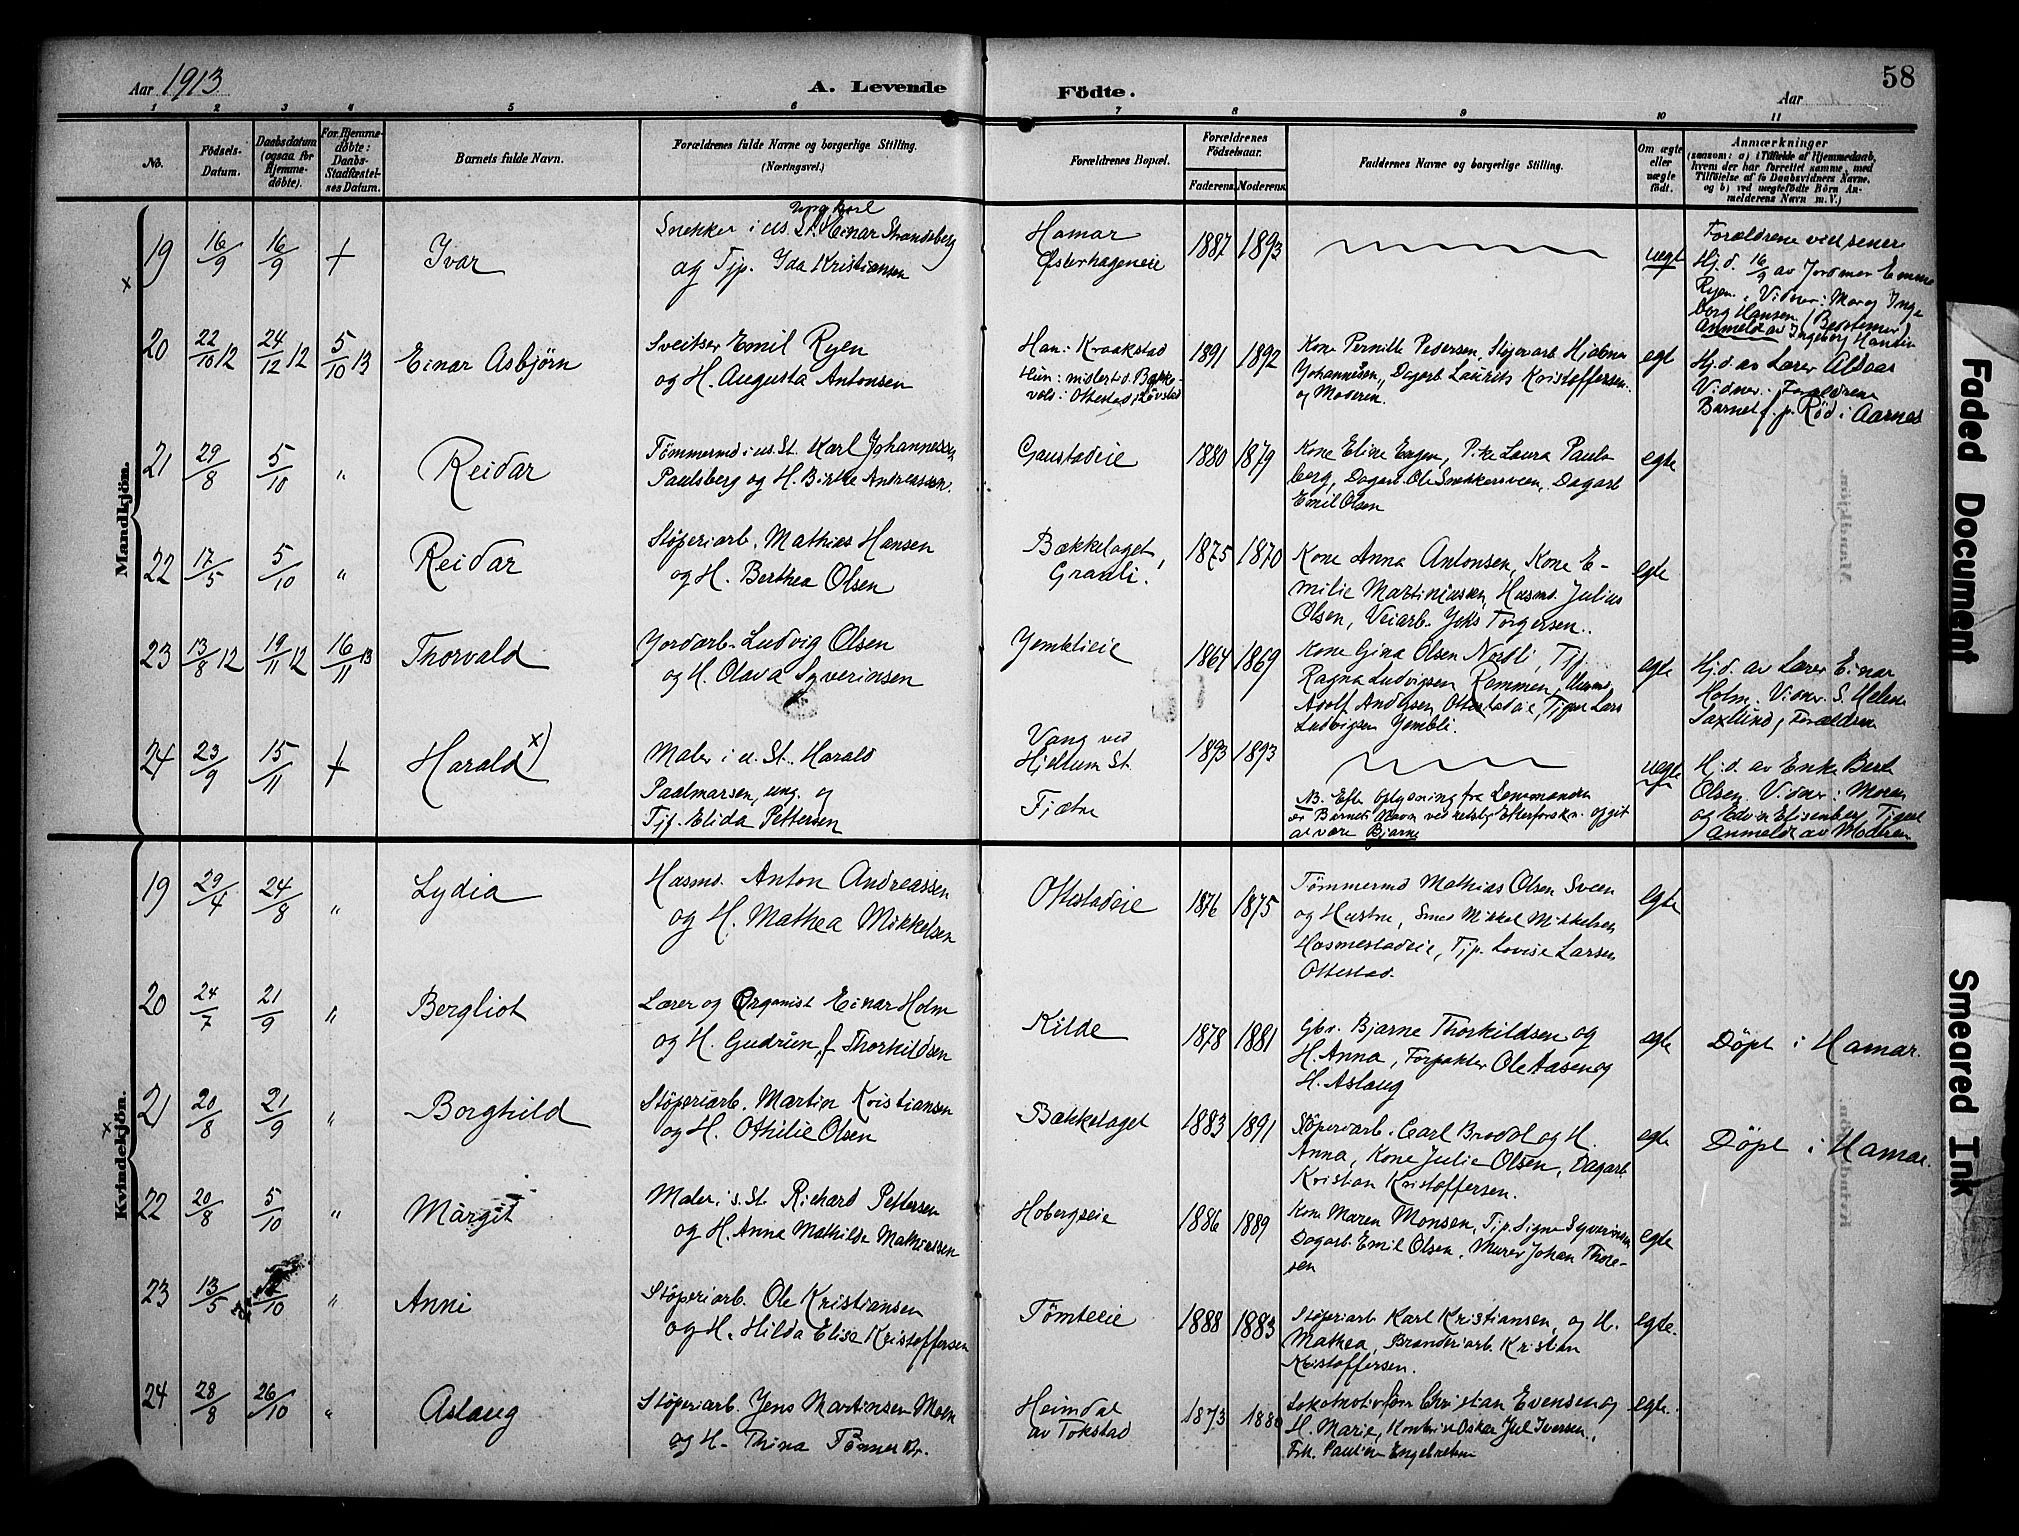 Aar 1913
A. Levende Födte.
58
Aar
1 2 3 4 5 6 7 8 9 10 11
No.
Födsels-Datum.
Daabsdatum (ogsaa for Hjemmedöbte).
For Hjemmedöbte: Daabs-Stadfæstelses Datum.
Barnets fulde Navn.
Forældrenes fulde Navne og borgerlige Stilling.
(Næringsvei.)
Forældrenes Bopæl.
Forældrenes Födselsaar.
Faderens. Moderens.
Faddernes Navne og borgerlige Stilling.
Om ægte eller uægte födt.
Anmærkninger
(saasom: a) i Tilfælde af Hjemmedaab, hvem der har forrettet samme, med Tilföielse af to Daabsvidners Navne, og b) ved uægtefödte Börn Anmelderens Navn m. V.)
Mandkjön.
19 16/9 16/9 + Ivar
Ungkarl
Snekker i us. St. Einar Strandsberg
og Tjp. Ida Kristiansen
Hamar
Østerhageneie
1887 1893
uegt
Forældrene vid senere
Hj.d. 16/9 av Jordmor Emma
Ryen. Vidner: Mor og Inge
borg Hansen (Bedstemor)
Anmeldt av Ingeborg Hansen
20 22/10 12 24/12 12 5/10 13 Einar Asbjörn
Sveitser Emil Ryen
og H. Augusta Antonsen
Han: Kraakstad
Hun: midlertid. Bække-
vold i Ottestad, Løvstad
1891 1892
Kone Pernille Pedersen, Støperiarb Hjalmar
Johannesen, Dagarb. Laurits Kristoffersen
og Moderen.
egt
Hj.d. av Lærer Alsaas
Vidner: Forældrene
Barnet f. p. Rød i Aarnes
21 29/8 5/10 " Reidar
Tömmermd i us. St. Karl Johannessen
Paulsberg og H. Birthe Andreassen.
Gaustadeie
1880 1879
Kone Eline Engen, Pike Laura Pauls
berg, Dagarb. Ole Snekkersveen, Dagarb
Emil Olsen
egte
22 17/5 5/10 " Reidar
Støperiarb. Mathias Hansen
og H. Berthea Olsen
Bækkelaget,
Graali.
1875 1870
Kone Anna Antonsen, Kone E-
milie Martiniussen, Husmd. Julius
Olsen, Veiarb. Jens Torgersen.
egte
23 13/8 12 19/11 12 16/11 13 Thorvald
Jordarb. Ludvig Olsen
og H. Olava Syverinsen
Jemblieie
1864 1869
Kone Gina Olsen Nordli, Tjp.
Ragna Ludvigsen Rommen, Husmd
Adolf Andersen Ottestadeie, Tjgut Lars
Ludvigsen Jembli.
egte
Hj.d. av Lærer Einar
Holm, Vidner: S. Helene
Saxlund, Forældrene
24 23/9 15/11 + Harald x)
Maler i u. St. Harald
Paalmarsen, ung. og
Tjp. Elida Pettersen
Vang ved
Hjellum St.
Fjetre
1893 1893
NB. Efter Oplysning fra Lensmanden
er Barnets Navn ved retslig Efterforskn. opgit
at være Bjarne
uegte
Hj.d. av Enke Berte
Olsen, Vidner: Moren
og Edvin Elisenberg Tjgut
Anmeldt av Moderen
Kvindekjön.
19 29/4 24/8 " Lydia
Husmd. Anton Andreassen
og H. Mathea Mikkelsen
Ottestadeie
1876 1875
Tömmermd Mathias Olsen Sveen
og Hustru, Smed Mikkel Mikkelsen
Husmestadeie, Tjp. Lovise Larsen
Ottestad.
egte
20 24/7 21/9 " Bergliot
Lærer og Organist Einar Holm
og H. Gudrun, f. Thorkildsen
Kilde
1878 1881
Gbr. Bjarne Thorkildsen og
H. Anna, Forpakter Ole Aasen og
H. Aslaug
egte
Döpt i Hamar.
21 20/8 21/9 " Borghild
Støperiarb. Martin Kristiansen
og H. Othilie Olsen
Bækkelaget
1883 1891
Støperiarb. Carl Brodal og H.
Anna, Kone Julie Olsen, Dagarb.
Kristian Kristoffersen.
egte
Döpt i Hamar.
22 20/8 5/10 " Margit
Maler i s. St. Richard Pettersen
og H. Anna Mathilde Mathiassen
Hobergseie
1886 1889
Kone Maren Monsen, Tjp. Signe Syverinsen
Dagarb. Emil Olsen, Murer Johan Thore-
sen
egte
23 13/5 /10 " Anni
Støperiarb. Ole Kristiansen
og H. Hilda Elise Kristoffersen
Tömteeie
1888 1883
Støperiarb Karl Kristiansen, og H.
Mathea, Brænderiarb. Kristian
Kristoffersen.
egte.
24 28/8 26/10 " Aslaug
Støperiarb. Jens Martinsen Moen
og H. Thina Tönner
Heimdal
av Tokstad
1873 1880
Lokomotivfører Christian Evensen og
H. Marie, Kontorist Oskar Jul Iversen,
Frk. Pauline Engebretsen
egte.
Faded Document
Smeared Ink